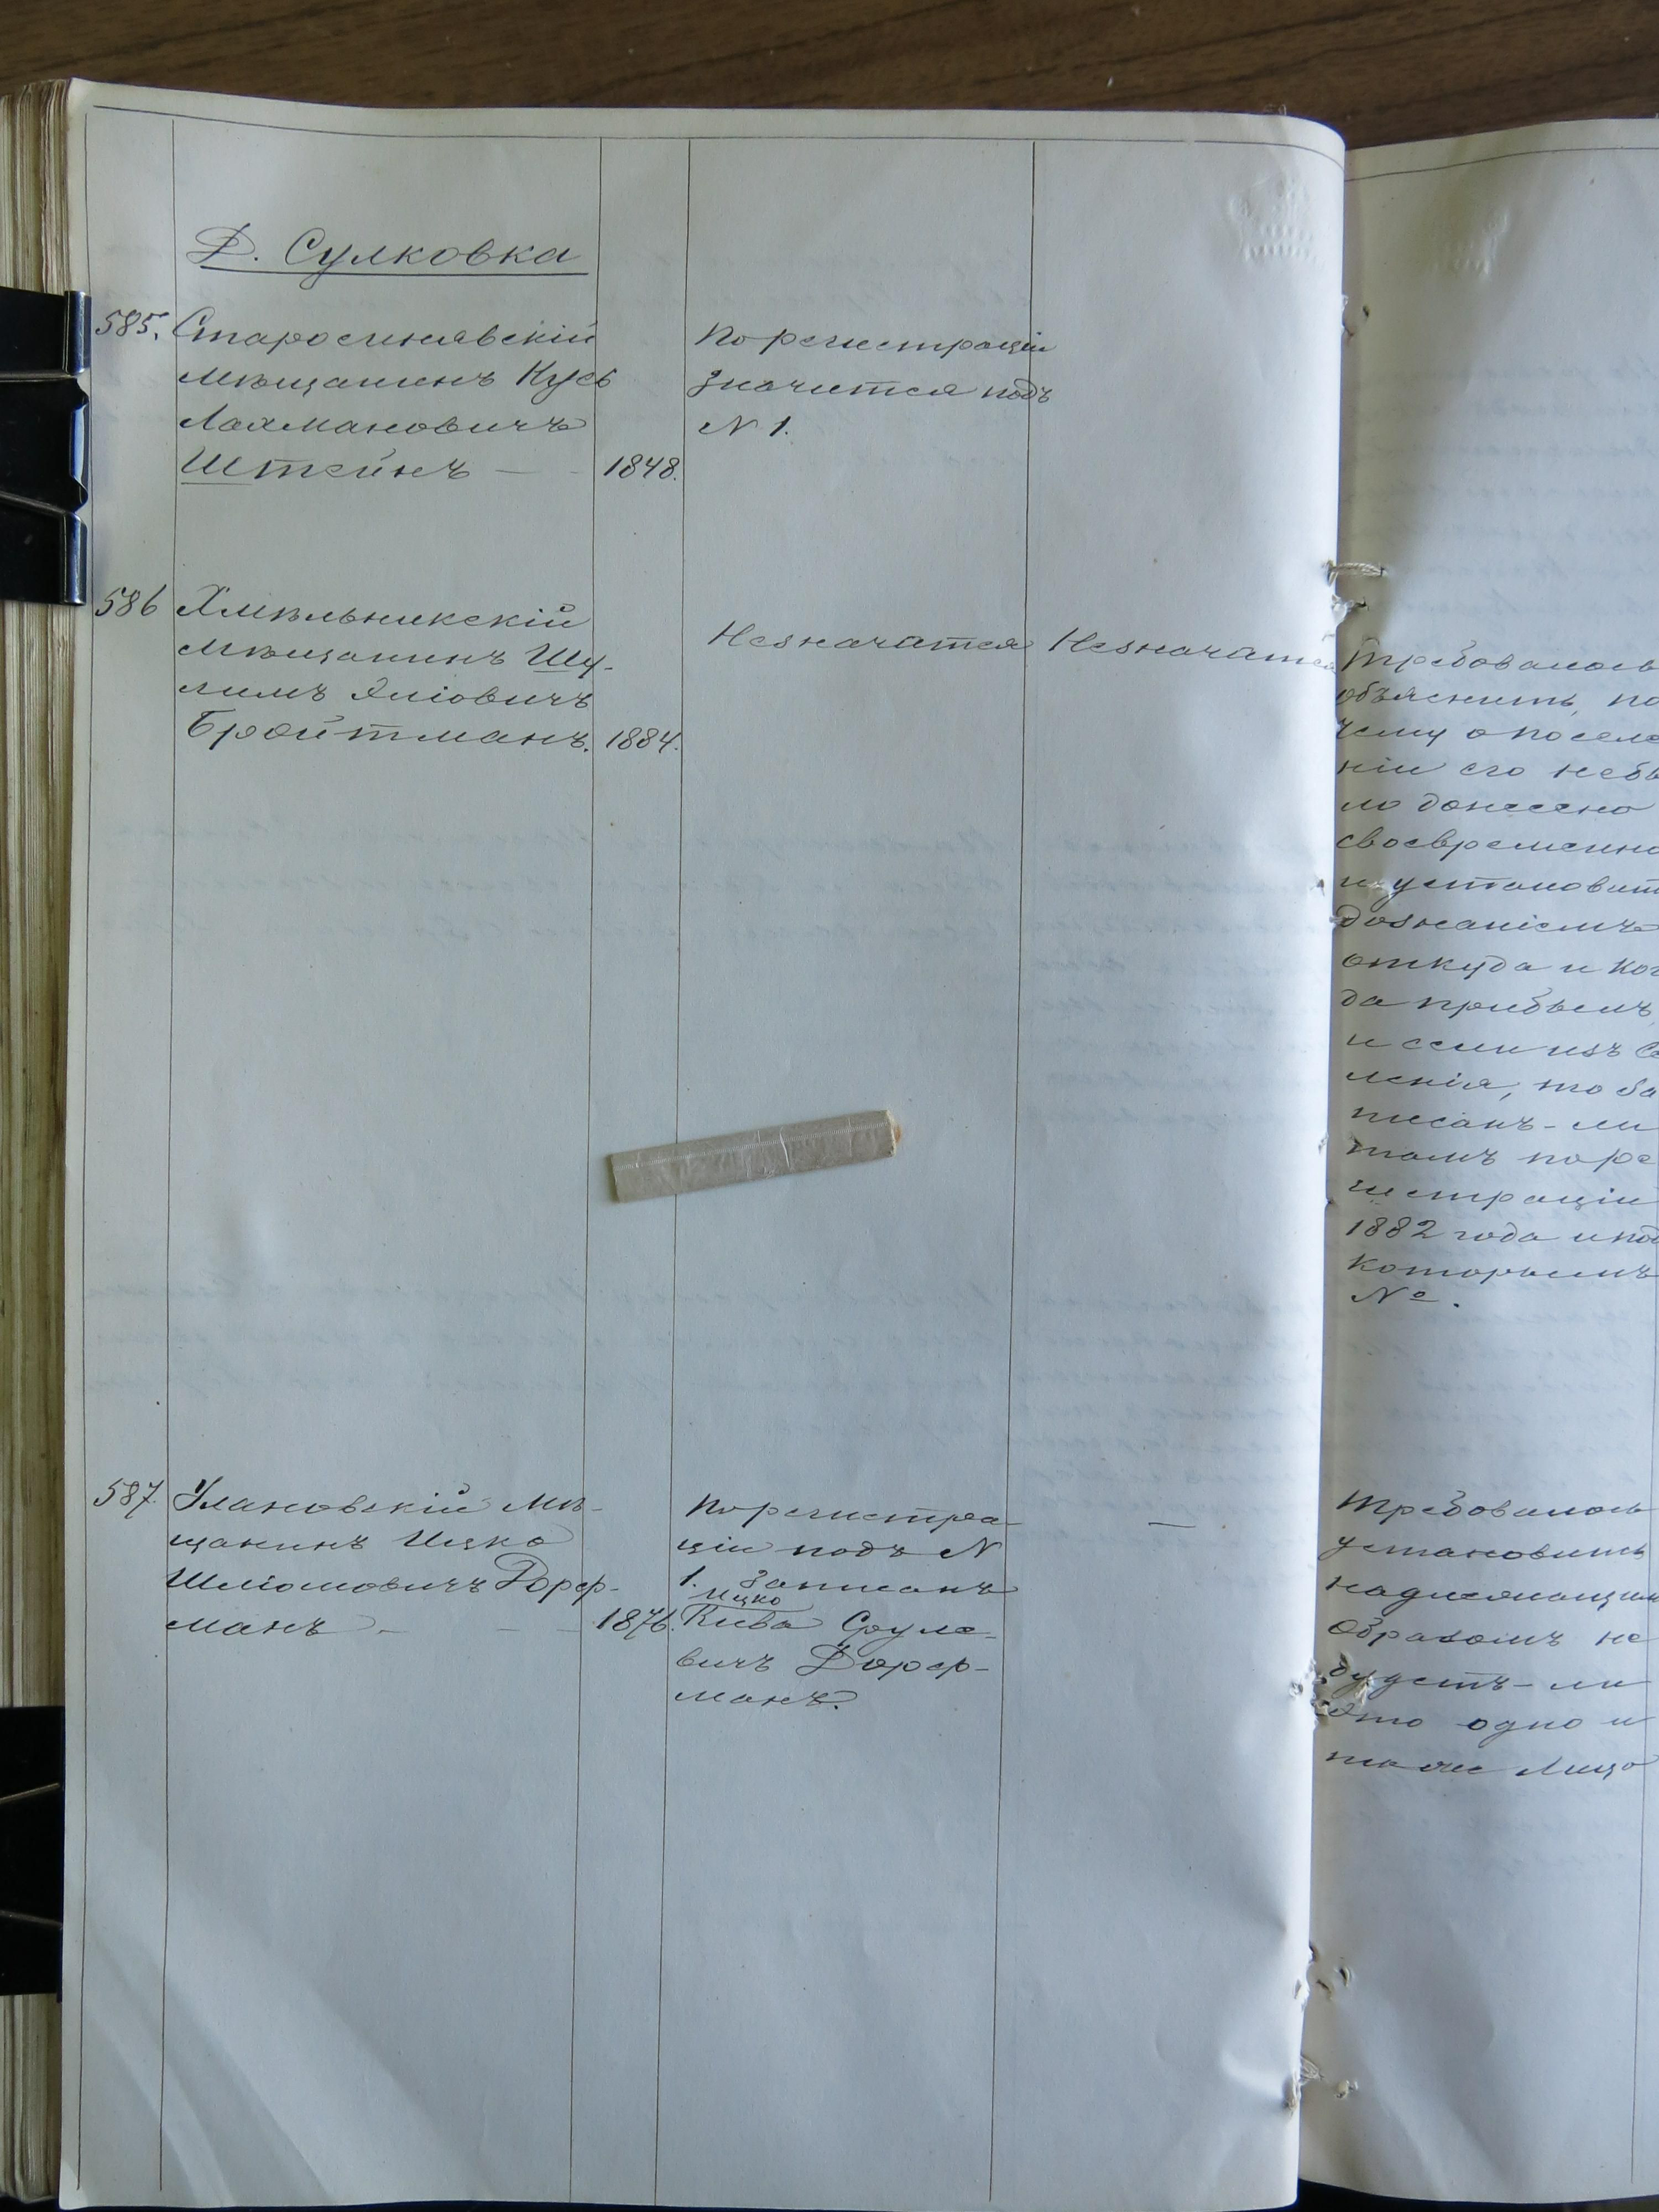 Д. Сулковка
585. Старосинявскій
мѣщанинъ Кусь
Лахмановичъ
Штейнъ — - 1848.
По регистраціи
значится подъ
N 1.
586 Хмѣльникскій
мѣщанинъ Шу-
лимъ Эліовичъ
Бройтманъ. 1884.
Незначатся
Незначатся
Требовалось
объяснить, по
чему о поселе
ніи его небы
ло донесено
своевременно
и установит
дознаніемъ
откуда и ког
да прибылъ,
и если изъ Се
ленія, то за
писанъ-ли
тамъ по ре
гистраціи
1882 года и под
которымъ
№.
587. Улановскій мѣ-
щанинъ Ицко
Шліомовичъ Дорф-
манъ - - - 1876.
По регистра-
ціи подъ N
1. записанъ
Ицко
Кива Сруле-
вичъ Дорф-
манъ.
—
Требовалось
установить
надлежащим
образомъ не
будетъ-ли
это одно и
тоже лицо